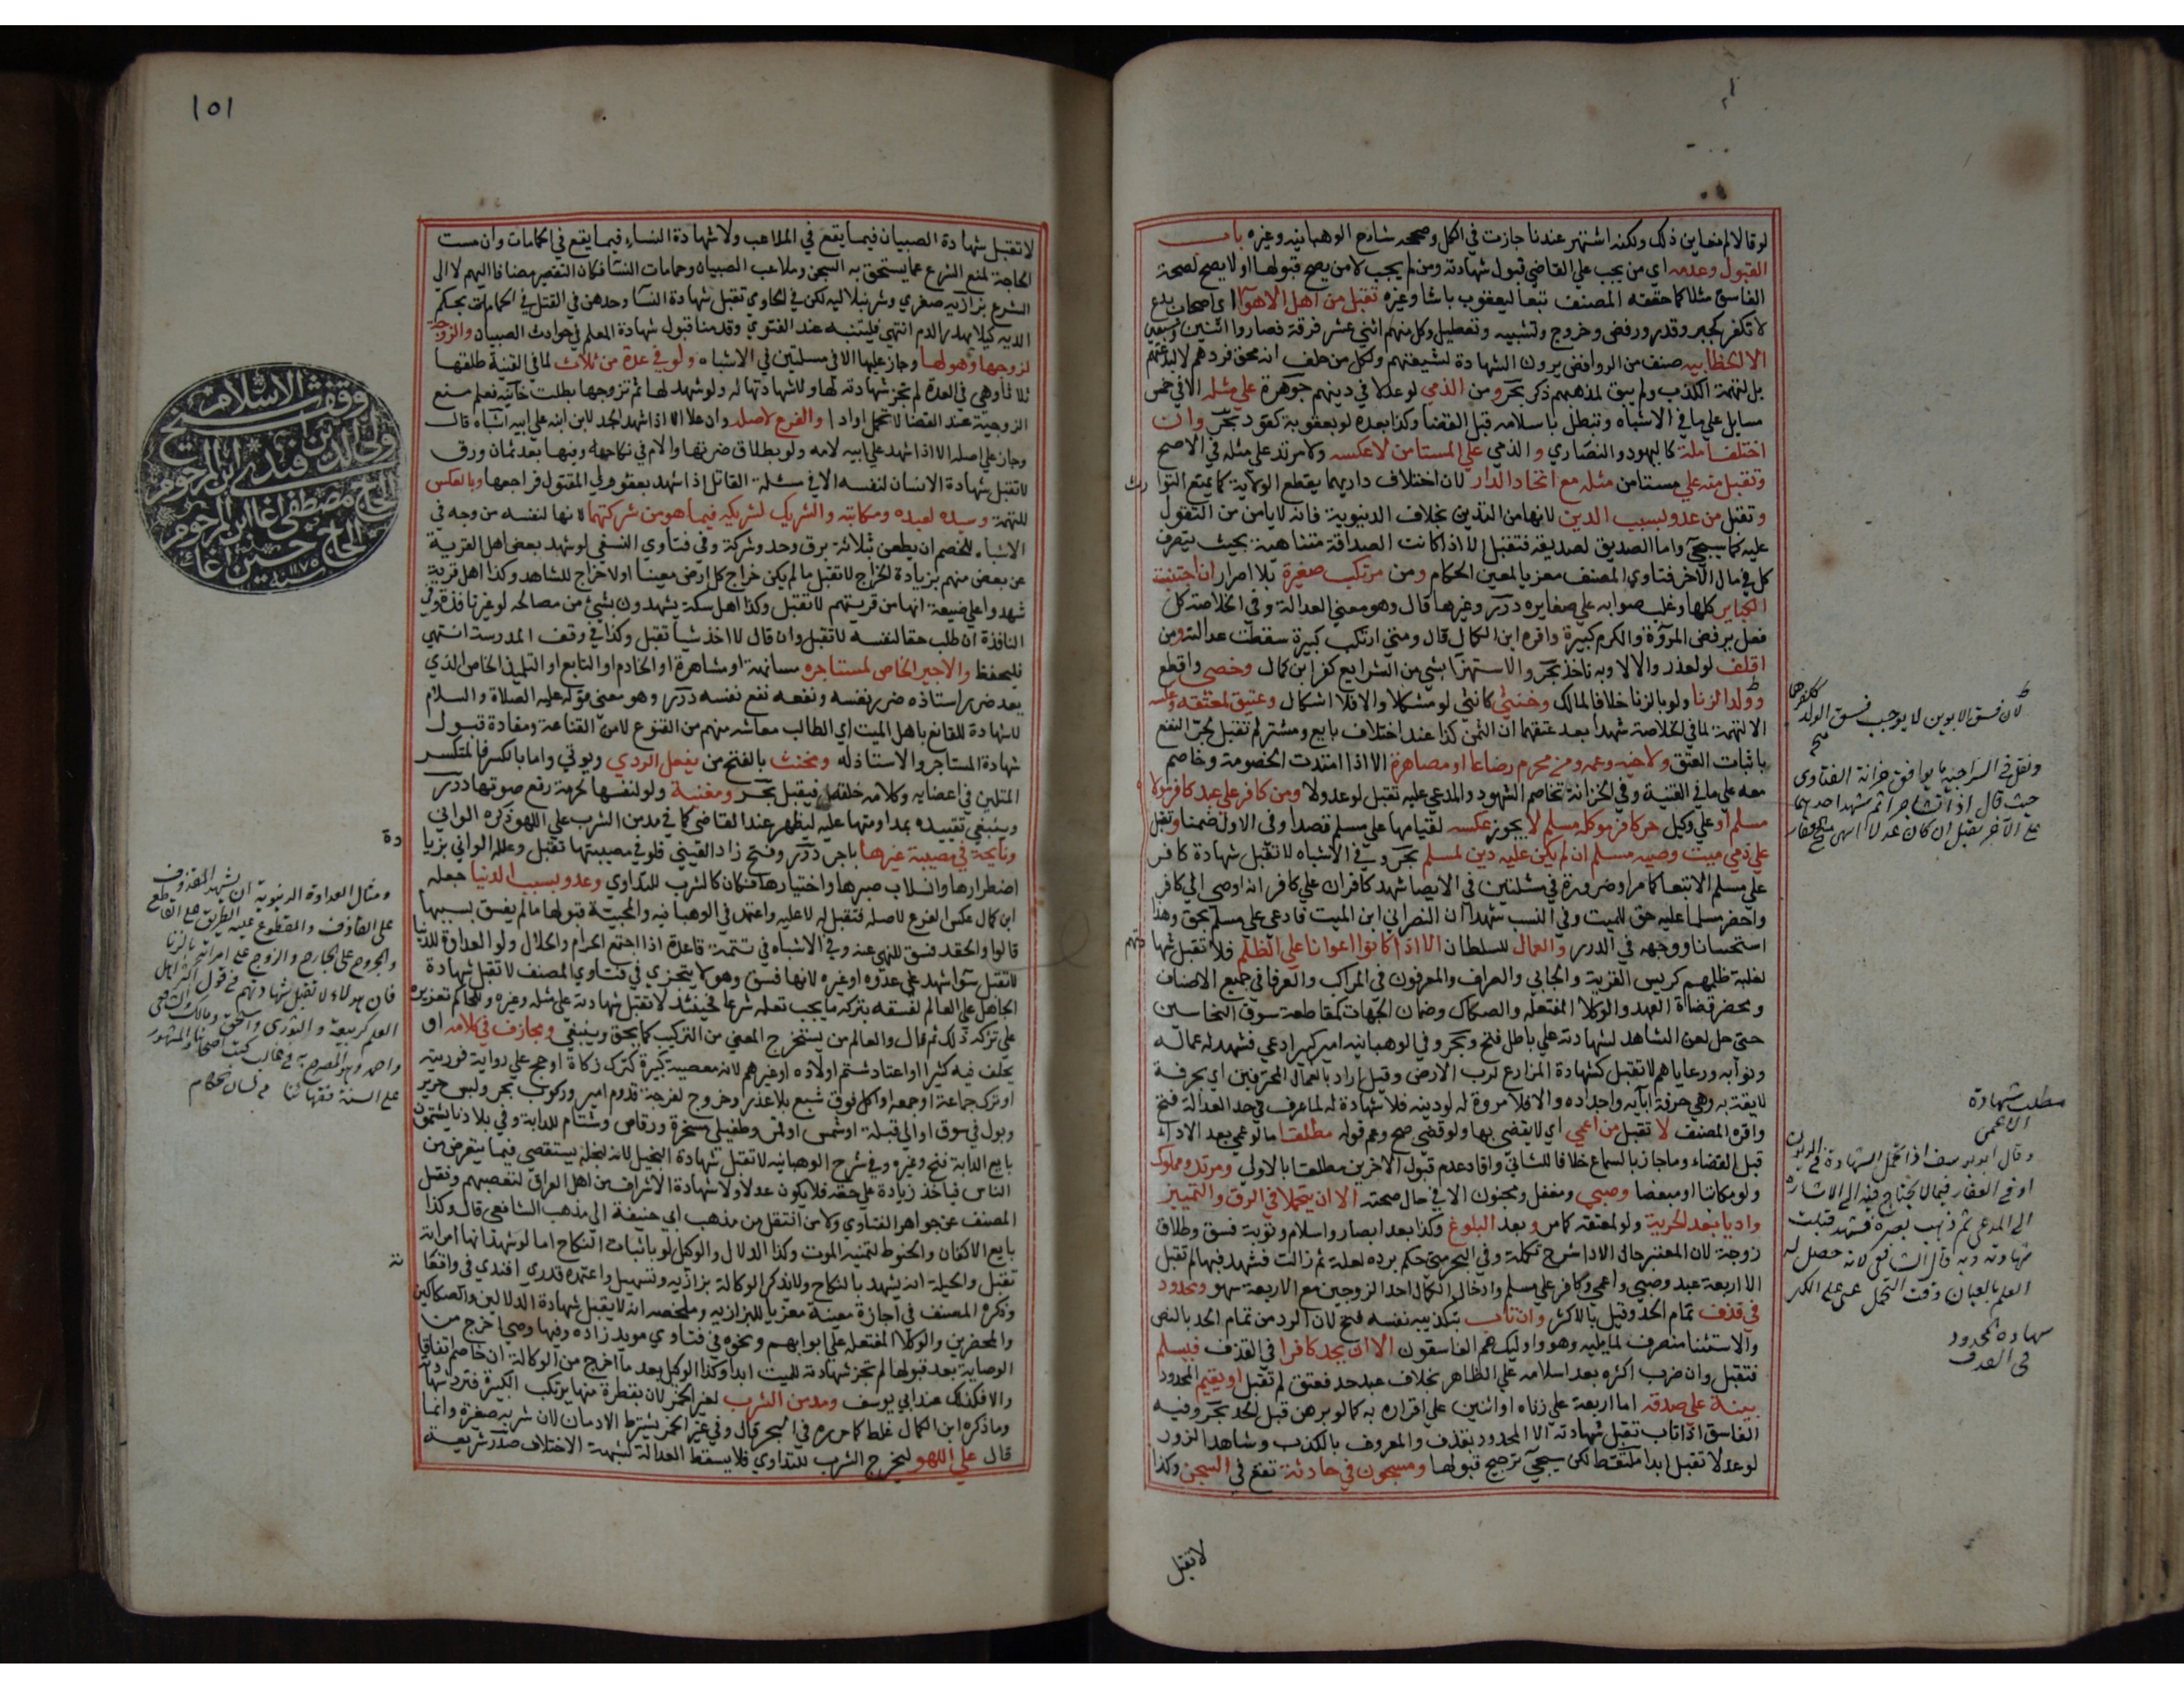 لو قالا لم نعاين ذلك ولكنه اشتهر عندنا جازت في الكل وصححه شارح الوهبانيه وغيره باب
القبول وعدمه اي من يجب علي القاضي قبول شهادته ومن لم يجب لا من يصح قبولها او لا يصح لصحة
الفاسق مثلا كما حققه المصنف تبعا ليعقوب باشا وغيره تقبل من اهل الاهوآ اي اصحاب بدع
لا تكفر كجبر وقدر ورفض وخروج وتشبيه وتعطيل وكل منهم اثني عشر فرقة فصاروا اثنين وسبعين
الا الخطابيه صنف من الروافض يرون الشهادة لشيعتهم ولكل من حلف انه محق فردهم لا لبدعتهم
بل لتهمة الكذب ولم يبق لمذهبهم ذكر بحر ومن الذمي لو عدلا في دينهم جوهرة علي مثله الا في خمس
مسايل علي ما في الاشباه وتبطل باسلامه قبل القضا وكذا بعده لو بعقوبة كقود بحر وان
اختلفا ملة كاليهود والنصاري والذمي علي المستامن لا عكسه ولا مرتد علي مثله في الاصح
وتقبل منه علي مستامن مثله مع اتحاد الدار لان اختلاف داريهما يقطع الولاية كما يمنع التوارث
وتقبل من عدو بسبب الدين لانها من التدين بخلاف الدنيوية فانه لا يامن من التقول
عليه كما سيجئ واما الصديق لصديقه فتقبل الا اذا كانت الصداقة متناهية بحيث يتصرف
كل في مال الآخر فتاوي المصنف معزيا لمعين الحكام ومن مرتكب صغيرة بلا اصرار ان اجتنب
الكباير كلها وغلب صوابه علي صغايره درر وغيرها قال وهو معني العدالة وفي الخلاصة كل
فعل يرفض المروّة والكرم كبيرة واقره ابن الكمال قال ومتي ارتكب كبيرة سقطت عدالته ومن
اقلف لو لعذر والا لا وبه ناخذ بحر والاستهزآ بشئ من الشرايع كفر ابن كمال وخصي واقطع
وولد الزنا ولو بالزنا خلافا لمالك وخنثي كانثي لو مشكلا والا فلا اشكال وعتيق لمعتقه وعكسه
الا لتهمة لما في الخلاصة شهدا بعد عتقهما ان الثمن كذا عند اختلاف بايع ومشتر لم تقبل لجر النفع
باثبات العتق ولاخيه وعمه ومن محرم رضاعا او مصاهرة الا اذا امتدت الخصومة وخاصم
معه علي ما في القنية وفي الخزانة تخاصم الشهود والمدعي عليه تقبل لو عدولا ومن كافر علي عبد كافر مولاه
مسلم او علي وكيل حر كافر موكله مسلم لا يجوز عكسه لقيامها علي مسلم قصدا وفي الاول ضمنا وتقبل
علي ذمي ميت وصيه مسلم ان لم يكن عليه دين لمسلم بحر وفي الاشباه لا تقبل شهادة كافر
علي مسلم الا تبعا كما مر او ضرورة في مسئلتين في الايصا شهد كافران علي كافر انه اوصي الي كافر
واحضر مسلما عليه حق للميت وفي النسب شهدا ان النصراني ابن الميت فادعي علي مسلم بحق وهذا
استحسانا ووجهه في الدرر والعمال للسلطان الا اذا كانوا اعوانا علي الظلم فلا تقبل شهادتهم
لغلبة ظلمهم كريس القرية والجابي والعراف والمعرفون في المراكب والعرفا في جميع الاصناف
ومحضر قضاة العهد والوكلا المفتعلة والصكاك وضمان الجهات كمقاطعة سوق النخاسين
حتي حل لعن الشاهد لشهادته علي باطل فتح وبحر وفي الوهبانيه امير كبير ادعي فشهد له عماله
ونوابه ورعاياهم لا تقبل كشهادة المزارع لرب الارض وقيل اراد بالعمال المحترفين اي بحرفة
لايقة به وهي حرفة ابآيه واجداده والا فلا مروة له لو دينه فلا شهادة له لما عرف في حد العدالة فتح
واقره المصنف لا تقبل من اعمي اي لا يقضي بها ولو قضي صح وعم قوله مطلقا ما لو عمي بعد الاداء
قبل القضاء وما جاز بالسماع خلافا للثاني وافاد عدم قبول الاخرس مطلقا بالاولي ومرتد ومملوك
ولو مكاتبا او مبعضا وصبي ومغفل ومجنون الا في حال صحته الا ان يتحملا في الرق والتمييز
واديا بعد الحرية ولو لمعتقه كما مر وبعد البلوغ وكذا بعد ابصار واسلام وتوبة فسق وطلاق
زوجة لان المعتبر حال الادا شرح تكملة وفي البحر متي حكم برده لعلة ثم زالت فشهد فيها لم تقبل
الا اربعة عبد وصبي واعمي وكافر علي مسلم وادخال الكمال احد الزوجين مع الاربعة سهو ومحدود
في قذف تمام الحد وقيل بالاكثر وان تاب بتكذيبه نفسه فتح لان الرد من تمام الحد بالنص
والاستثنا منصرف لما يليه وهو واوليك هم الفاسقون الا ان يحد كافرا في القذف فيسلم
فتقبل وان ضرب اكثره بعد اسلامه علي الظاهر بخلاف عبد حد فعتق لم تقبل او يقيم المحدود
بينة علي صدقه اما اربعة علي زناه او اثنين علي اقراره به كما لو برهن قبل الحد بحر وفيه
الفاسق اذا تاب تقبل شهادته الا المحدود بقذف والمعروف بالكذب وشاهد الزور
لو عدلا تقبل ابدا ملتقط لكن سيجئ ترجيح قبولها ومسجون في حادثة تقع في السجن وكذا
لا تقبل
لان فسق الابوين لا يوجب فسق الولد ككفرهما
منح
ونقل في السراجية ما يوافق خزانة الفتاوي
حيث قال اذا تشاجرا ثم شهد احدهما
علي الآخر يقبل ان كان عدلا انتهي
مطلب شهادة
الاعمي
وقال ابو يوسف اذا تحمل الشهادة في الديون
او في العقار فيما لا يحتاج فيه الي الاشارة
الي المدعي ثم ذهب بصره فشهد قبلت
شهادته وبه قال الشافعي لانه حصل له
العلم بالعيان وقت التحمل
شهادة المحدود
في القذف
١٥١
لا تقبل شهادة الصبيان فيما يقع في الملاعب ولا شهادة النساء فيما يقع في الحمامات وان مست
الحاجة لمنع الشرع عما يستحق به السجن وملاعب الصبيان وحمامات النسا فكان التقصير مضافا اليهم لا الي
الشرع بزازيه صغري وشرنبلاليه لكن في الحاوي تقبل شهادة النسآ وحدهن في القتل في الحمامات بحكم
الديه كيلا يهدر الدم انتهي فليتنبه عند الفتوي وقدمنا قبول شهادة المعلم في حوادث الصبيان والزوجة
لزوجها وهو لها وجاز عليها الا في مسئلتين في الاشباه ولو في عدة من ثلاث لما في القنية طلقها
ثلاثا وهي في العدة لم تجز شهادته لها ولا شهادتها له ولو شهد لها ثم تزوجها بطلت خانيه فعلم منع
الزوجية عند القضا لا تحمل او ادا والفرع لاصله وان علا الا اذا شهد الجد لابن ابنه علي ابيه اشباه قال
وجاز علي اصله الا اذا شهد علي ابيه لامه ولو بطلاق ضرتها والام في نكاحه وفيها بعد ثمان ورق
لا تقبل شهادة الانسان لنفسه الا في مسئلة القاتل اذا شهد بعفو ولي المقتول فراجعها وبالعكس
للتهمة وسيده لعبده ومكاتبه والشريك لشريكه فيما هو من شركتهما لانها لنفسه من وجه في
الاشباه للخصم ان يطعن بثلاثة برق وحد وشركة وفي فتاوي النسفي لو شهد بعض اهل القرية
عن بعض منهم بزيادة الخراج لا تقبل ما لم يكن خراج كل ارض معينا او لا خراج للشاهد وكذا اهل قرية
شهدوا علي ضيعة انها من قريتهم لا تقبل وكذا اهل سكة يشهدون بشئ من مصالحه لو غير نافذة وفي
النافذة ان طلب حقا لنفسه لا تقبل وان قال لا اخذ شيا تقبل وكذا في وقف المدرسة انتهي
فليحفظ والاجير الخاص لمستاجره مسانهة او مشاهرة او الخادم او التابع او التلميذ الخاص الذي
يعد ضرر استاذه ضرر نفسه ونفعه نفع نفسه درر وهو معني قوله عليه الصلاة والسلام
لا شهادة للقانع باهل الميت اي الطالب معاشه منهم من القنوع لا من القناعة ومفادة قبول
شهادة المستاجر والاستاذ له ومخنث بالفتح من يفعل الردي ويوتي واما بالكسر فالمتكسر
المتلين في اعضايه وكلامه خلقة فيقبل بحر ومغنية ولو لنفسها لحرمة رفع صوتها درر
وينبغي تقييده بمداومتها عليه ليظهر عند القاضي كما في مدمن الشرب علي اللهو ذكره الواني
ونايحة في مصيبة غيرها باجر درر وفتح زاد العيني فلو في مصيبتها تقبل وعلله الواني بزيادة
اضطرارها وانسلاب صبرها واختيارها فكان كالشرب للتداوي وعدو بسبب الدنيا جعله
ابن كمال عكس الفرع لاصله فتقبل له لا عليه واعتمد في الوهبانيه والمحبية قبولها ما لم يفسق بسببها
قالوا والحقد فسق للنهي عنه وفي الاشباه في تتمة قاعدة اذا اجتمع الحرام والحلال ولو العداوة للدنيا
لا تقبل سوآ شهد علي عدوه او غيره لانها فسق وهو لا يتجزي في فتاوي المصنف لا تقبل شهادة
الجاهل علي العالم لفسقه بتركه ما يجب تعلمه شرعا فحينئذ لا تقبل شهادته علي مثله وغيره وللحاكم تعزيره
علي تركه ذلك ثم قال والعالم من يستخرج المعني من التركيب كما يحق وينبغي ومجازف في كلامه او
يحلف فيه كثيرا او اعتاد شتم اولاده او غيرهم لانه معصية كبيرة كترك زكاة او حج علي رواية فوريته
او ترك جماعة او جمعه او اكل فوق شبع بلا عذر وخروج لفرجة قدوم امير وركوب بحر ولبس حرير
وبول في سوق او الي قبلة او شمس او قمر وطفيلي ومسخرة ورقاص وشتام للدابة وفي بلادنا يشتمون
بايع الدابة فتح وغيره وفي شرح الوهبانيه لا تقبل شهادة البخيل لانه لبخله يستقصي فيما يتقرض من
الناس فياخذ زيادة علي حقه فلا يكون عدلا ولا شهادة الاشراف من اهل العراق لتعصبهم ونقل
المصنف عن جواهر الفتاوي ولا من انتقل من مذهب ابي حنيفة الي مذهب الشافعي قال وكذا
بايع الاكفان والحنوط لتمنيه الموت وكذا الدلال والوكيل لو باثبات النكاح اما لو شهد انها امراته
تقبل والحيلة انه يشهد بالنكاح ولا يذكر الوكالة بزازيه وتسهيل واعتمده قدري افندي في واقعاته
وذكره المصنف في اجازة معينة معزيا للبزازيه وملخصه انه لا يقبل شهادة الدلالين والصكاكين
والمحضرين والوكلا المفتعلة علي ابوابهم ونحوه في فتاوي مويد زاده وفيها وصي اخرج من
الوصاية بعد قبولها لم تجز شهادته للميت ابدا وكذا الوكيل بعد ما اخرج من الوكالة ان خاصم اتفاقا
والا فكذلك عند ابي يوسف ومدمن الشرب لغير الخمر لان بقطرة منها يرتكب الكبيرة فترد شهادته
وما ذكره ابن الكمال غلط كما حرره في البحر قال وفي غير الخمر يشترط الادمان لان شربه صغيرة وانما
قال علي اللهو ليخرج الشرب للتداوي فلا يسقط العدالة لشبهة الاختلاف صدر شريعة
وقف شيخ الاسلام
ولي الدين افندي ابن المرحوم
الحاج مصطفي اغا ابن المرحوم
الحاج حسين اغا
سنة ١١٧٥
ومثال العداوة الدنيوية ان يشهد المقذوف
علي القاذف والمقطوع عليه الطريق علي القاطع
والمجروح علي الجارح والزوج علي امراته بالزنا
فان هولاء لا تقبل شهادتهم في قول اكثر اهل
العلم كربيعة والثوري واسحق ومالك والشافعي
واحمد وهو المصرح به في غالب كتب اصحابنا والمشهور
علي السنة فقهائنا لسان الحكام